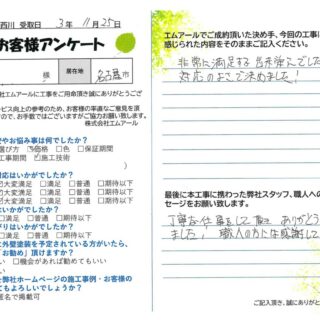 西川 受取日 3年 11月25日
お客様アンケート
様 居在地 名古屋市
社エムアールに工事をご用命頂き誠にありがとうござ
ビス向上の参考のため、お客様の率直なご意見を頂
ので、お手数ではございますがご協力お願い致します。
株式会社エムアール
安やお悩み事は何でしたか?
選び方 ☑価格 □色 □保証期間
工事期間 ☑施工技術
対応はいかがでしたか?
☑大変満足 □満足 □普通 □期待以下
はいかがでしたか?
☑大変満足 □満足 □普通 □期待以下
はいかがでしたか?
大変満足 □満足 □普通 □期待以下
に外壁塗装を予定されている方がいたら、
「お勧め」頂けますか?
い □機会があれば勧めてもいい
い
を弊社ホームページの施工事例・お客様の
てもよろしいでしょうか?
匿名で掲載可
エムアールでご成約頂いた決め手、今回の工事に
感じられた内容をそのままご記入ください。
非常に満足する出来栄えでした
対応のよさで決めました!
最後に本工事に携わった弊社スタッフ、職人への
セージをお願い致します。
丁寧な仕事をして頂き ありがとう
ました! 職人の方には感謝して
ご記入頂き、誠にありがと